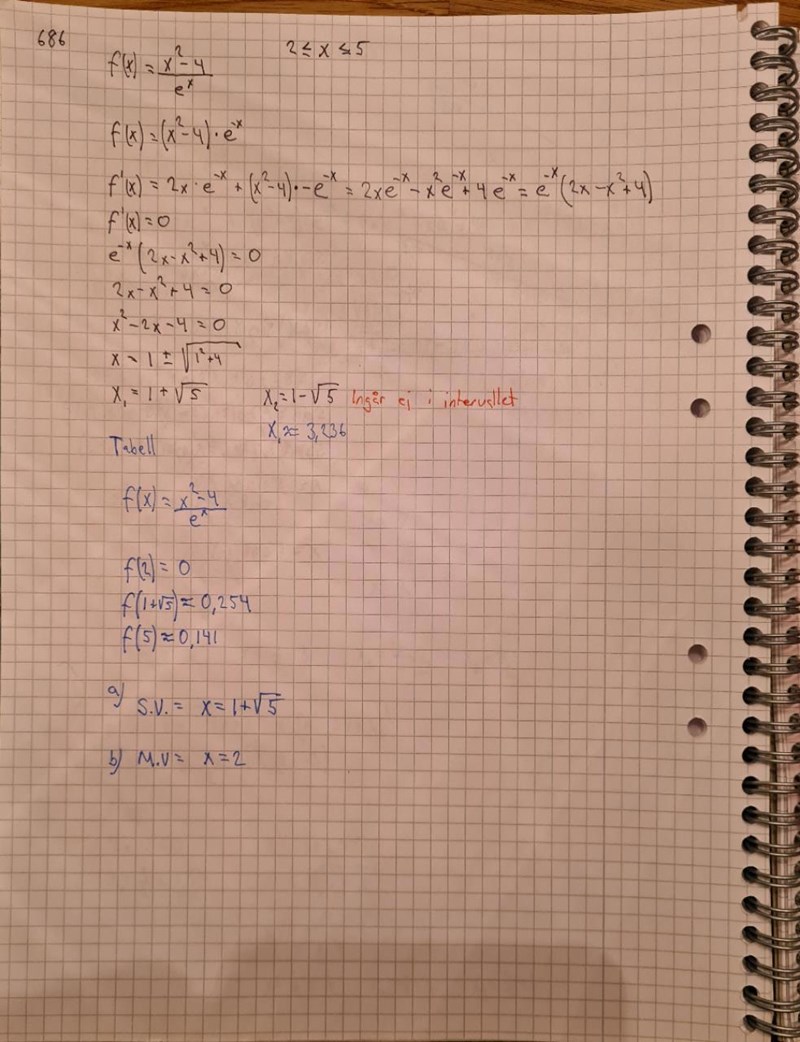 686
f(x) = x²-4 / eˣ    2 ≤ x ≤ 5
f(x) = (x²-4) · e⁻ˣ
f'(x) = 2x · e⁻ˣ + (x²-4) · -e⁻ˣ = 2xe⁻ˣ - x²e⁻ˣ + 4e⁻ˣ = e⁻ˣ(2x-x²+4)
f'(x) = 0
e⁻ˣ(2x-x²+4) = 0
2x-x²+4 = 0
x²-2x-4 = 0
x = 1 ± √(1²+4)
x₁ = 1 + √5    x₂ = 1-√5 Ingår ej i intervallet
x₁ ≈ 3,236
Tabell
f(x) = x²-4 / eˣ
f(2) = 0
f(1+√5) ≈ 0,254
f(5) ≈ 0,141
a) S.V. = x = 1+√5
b) M.V = x = 2